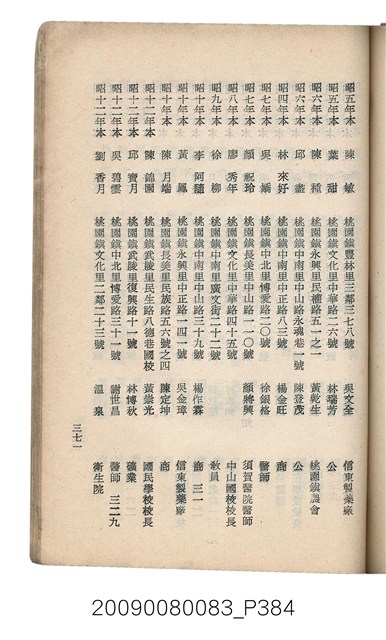 昭五年本 陳敏 桃園鎮豐林里三鄰三七八號 吳文全 信東製藥廠
昭五年本 葉甜 桃園鎮文化里中華路二六號 林瑞芳 公
昭六年本 陳種 桃園鎮永興里民權路五一之一 黃乾生 桃園鎮農會
昭六年本 邱 桃園鎮中南里中山路永魂巷一號 陳登茂 公
昭四年本 林來好 桃園鎮中南里中正路八三號 楊金旺 商
昭七年本 吳嬌 桃園鎮中北里博愛路二〇號 徐銀格 醫師
昭七年本 顏祝玲 桃園鎮長美里中山路一一〇號 顏將興 須賀醫院醫師
昭八年本 廖秀年 桃園鎮文化里中華路四十五號 中山國校校長
昭九年本 徐柳 桃園鎮中南里廣文街二十二號 教員
昭十年本 李阿隨 桃園鎮中南里中山路三十九號 楊作霖 商 三一二
昭十年本 黃鳳 桃園鎮永興里中正路一四一號 吳金璋 信東製藥廠
昭十年本 陳月端 桃園鎮長美里民族路五六號之四 陳定坤 商
昭十二年本 陳錦團 桃園鎮武陵里民生路八德巷國校 黃崇光 國民學校校長
昭十二年本 邱寶月 桃園鎮武陵里復興路十一號 林博秋 礦業
昭十二年本 吳碧雲 桃園鎮中北里博愛路三十一號 謝世昌 醫師 三二九
昭十二年本 劉香月 桃園鎮文化里二鄰二十三號 溫泉 衛生院
三七一
20090080083_P384